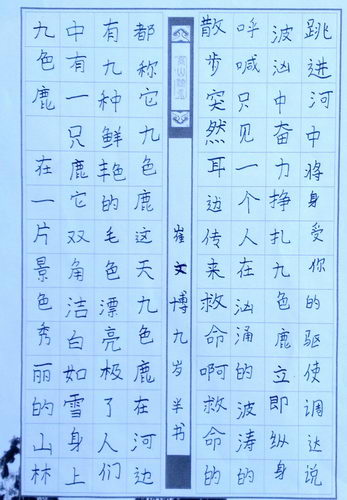 九色鹿 在一片景色秀丽的山林
中有一只鹿它双角洁白如雪身上
有九种鲜艳的毛色漂亮极了人们
都称它九色鹿这天九色鹿在河边
崔文博九岁半书
散步突然耳边传来救命啊救命的
呼喊只见一个人在汹涌的波涛的
波汹中奋力挣扎九色鹿立即纵身
跳进河中将身受你的驱使调达说